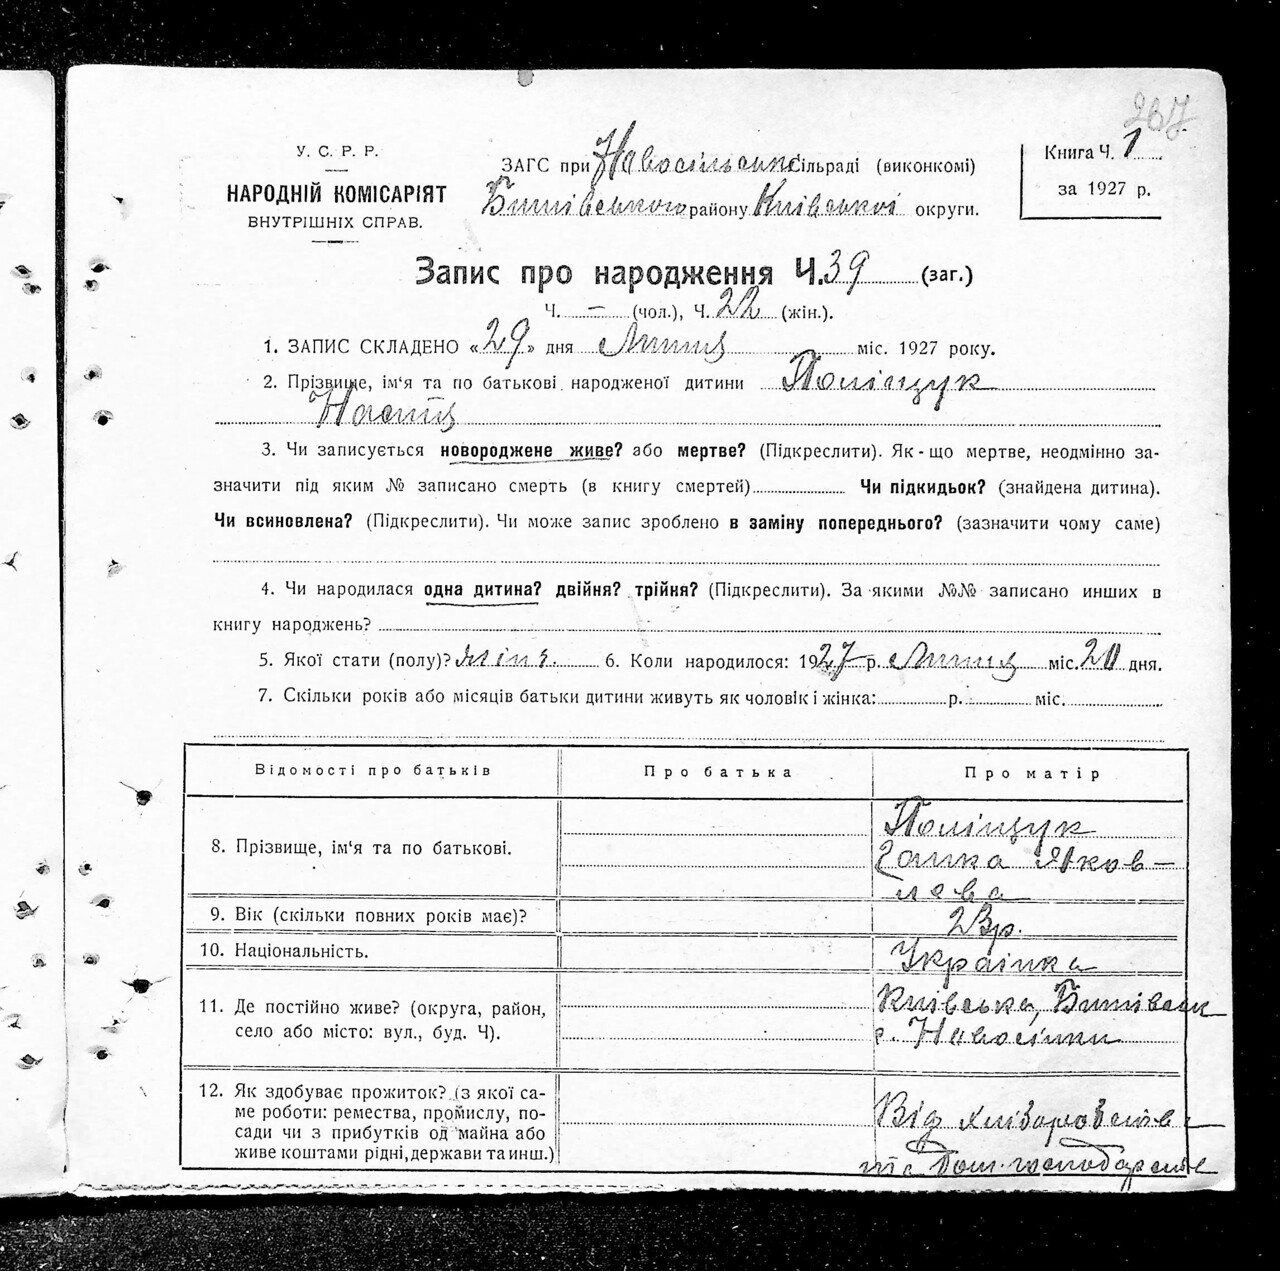 267
У. С. Р. Р.
НАРОДНІЙ КОМІСАРІЯТ
ВНУТРІШНІХ СПРАВ.
ЗАГС при Новосільськ сільраді (виконкомі)
Бишівського району Київської округи.
Книга Ч. 1
за 1927 р.
Запис про народження Ч. 39 (заг.)
Ч. — (чол.), Ч. 22 (жін.).
1. ЗАПИС СКЛАДЕНО «29» дня Липця міс. 1927 року.
2. Прізвище, ім'я та по батькові народженої дитини Поліщук
Настя
3. Чи записується новороджене живе? або мертве? (Підкреслити). Як-що мертве, неодмінно за-
значити під яким № записано смерть (в книгу смертей) Чи підкидьок? (знайдена дитина).
Чи всиновлена? (Підкреслити). Чи може запис зроблено в заміну попереднього? (зазначити чому саме)
4. Чи народилася одна дитина? двійня? трійня? (Підкреслити). За якими №№ записано инших в
книгу народжень?
5. Якої стати (полу)? жіноч. 6. Коли народилося: 1927 р. Липця міс. 20 дня.
7. Скільки років або місяців батьки дитини живуть як чоловік і жінка: р. міс.
Відомості про батьків Про батька Про матір
8. Прізвище, ім'я та по батькові.
Поліщук
Ганка Яков-
лева
9. Вік (скільки повних років має)? 23 р.
10. Національність. Українка
11. Де постійно живе? (округа, район,
село або місто: вул., буд. Ч).
Київська, Бишівськ
с. Новосілки
12. Як здобуває прожиток? (з якої са-
ме роботи: ремества, промислу, по-
сади чи з прибутків од майна або
живе коштами рідні, держави та инш.)
Від хліборобства
та господарств